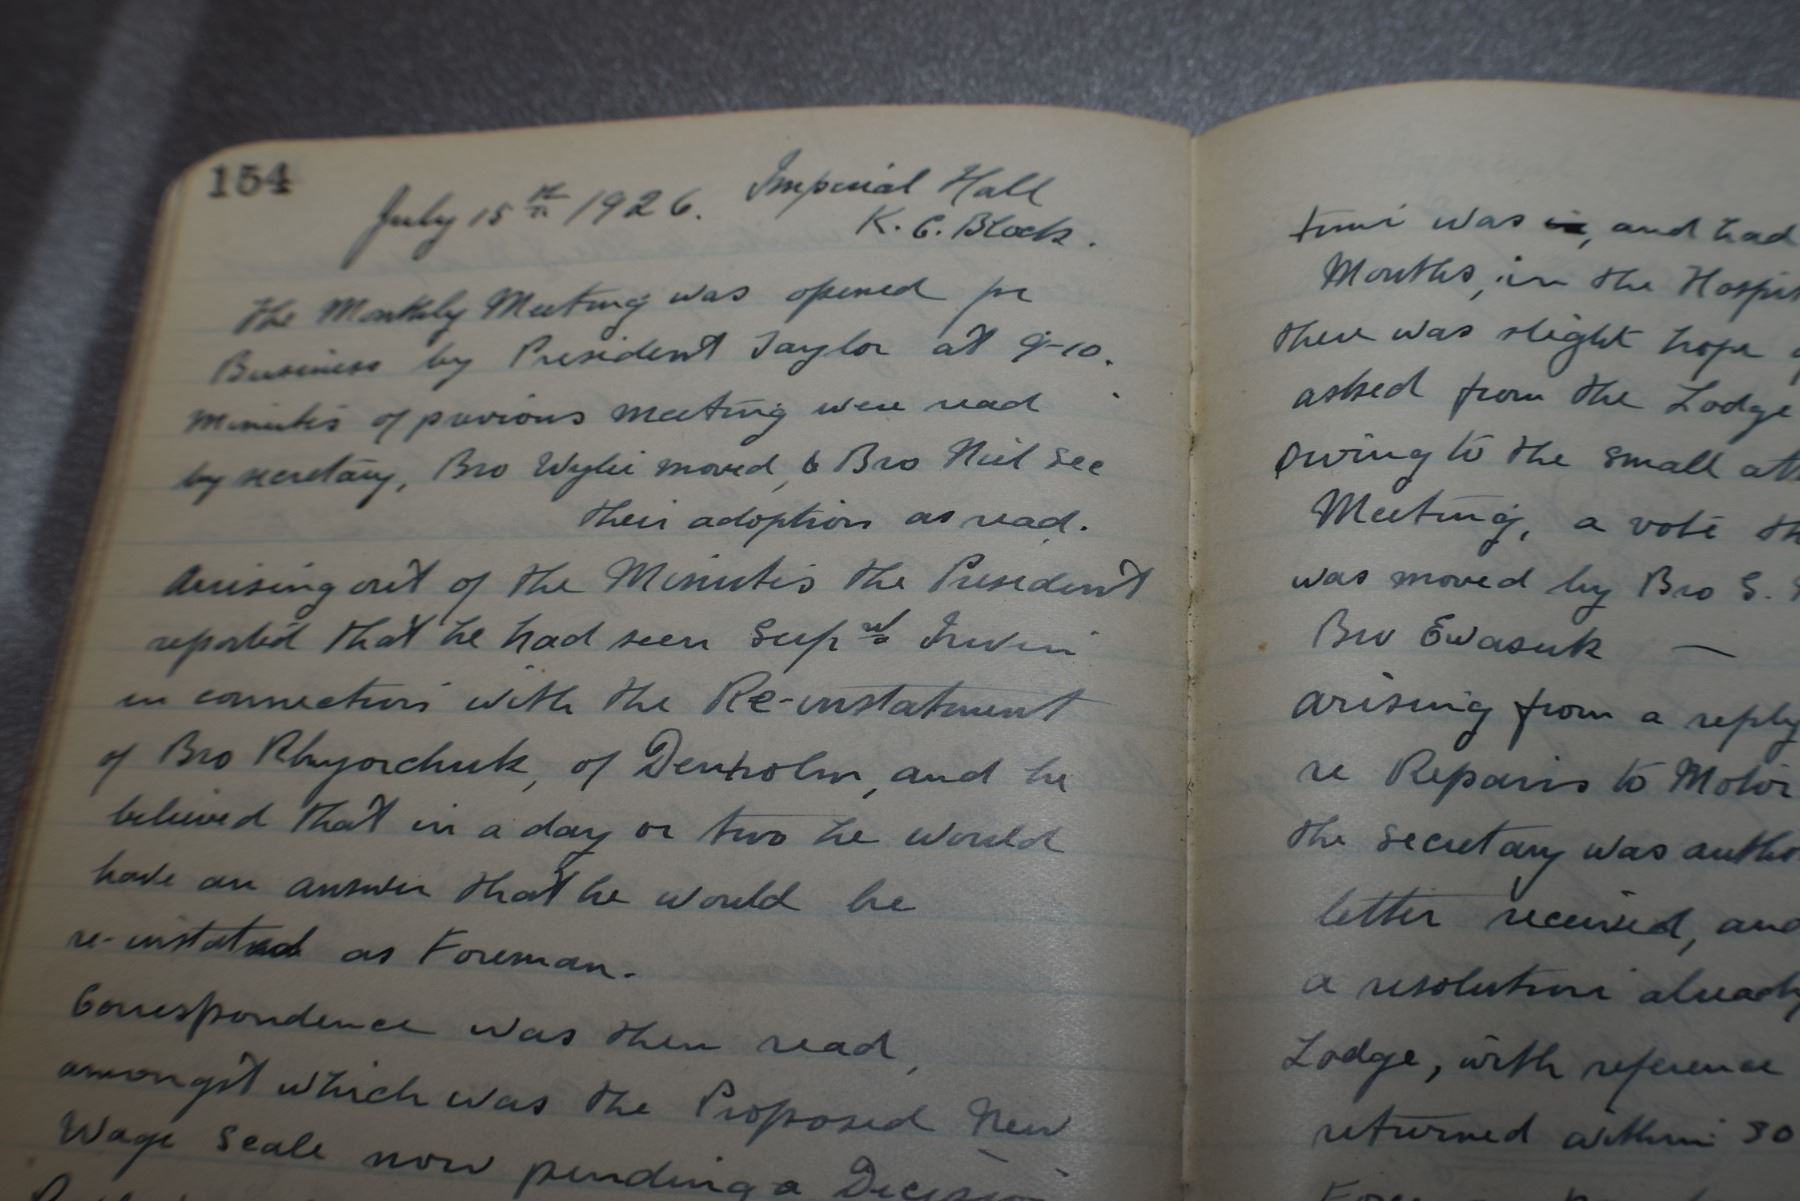 154
July 15th 1926. Imperial Hall
K. C. Block.
The Monthly Meeting was opened for
Business by President Taylor at 9-10.
Minutes of previous meeting were read
by secretary, Bro Wylie moved, & Bro Neil Sec
their adoption as read.
Arising out of the Minutes the President
reported that he had seen Supt Irwin
in connection with the Re-instatment
of Bro of Denholm, and he
believed that in a day or two he would
have an answer that he would be
re-instated as Foreman.
Correspondence was then read,
amongst which was the Proposed New
Wage Scale now pending a Decision
time was in, and had
Months, in the Hospit
there was slight hope
asked from the Lodge
Owing to the small att
Meeting, a vote th
was moved by Bro S.
Bro Ewasuk —
arising from a reply
re Repairs to Motor
the secretary was autho
letter received, and
a resolution already
Lodge, with reference
returned within 30